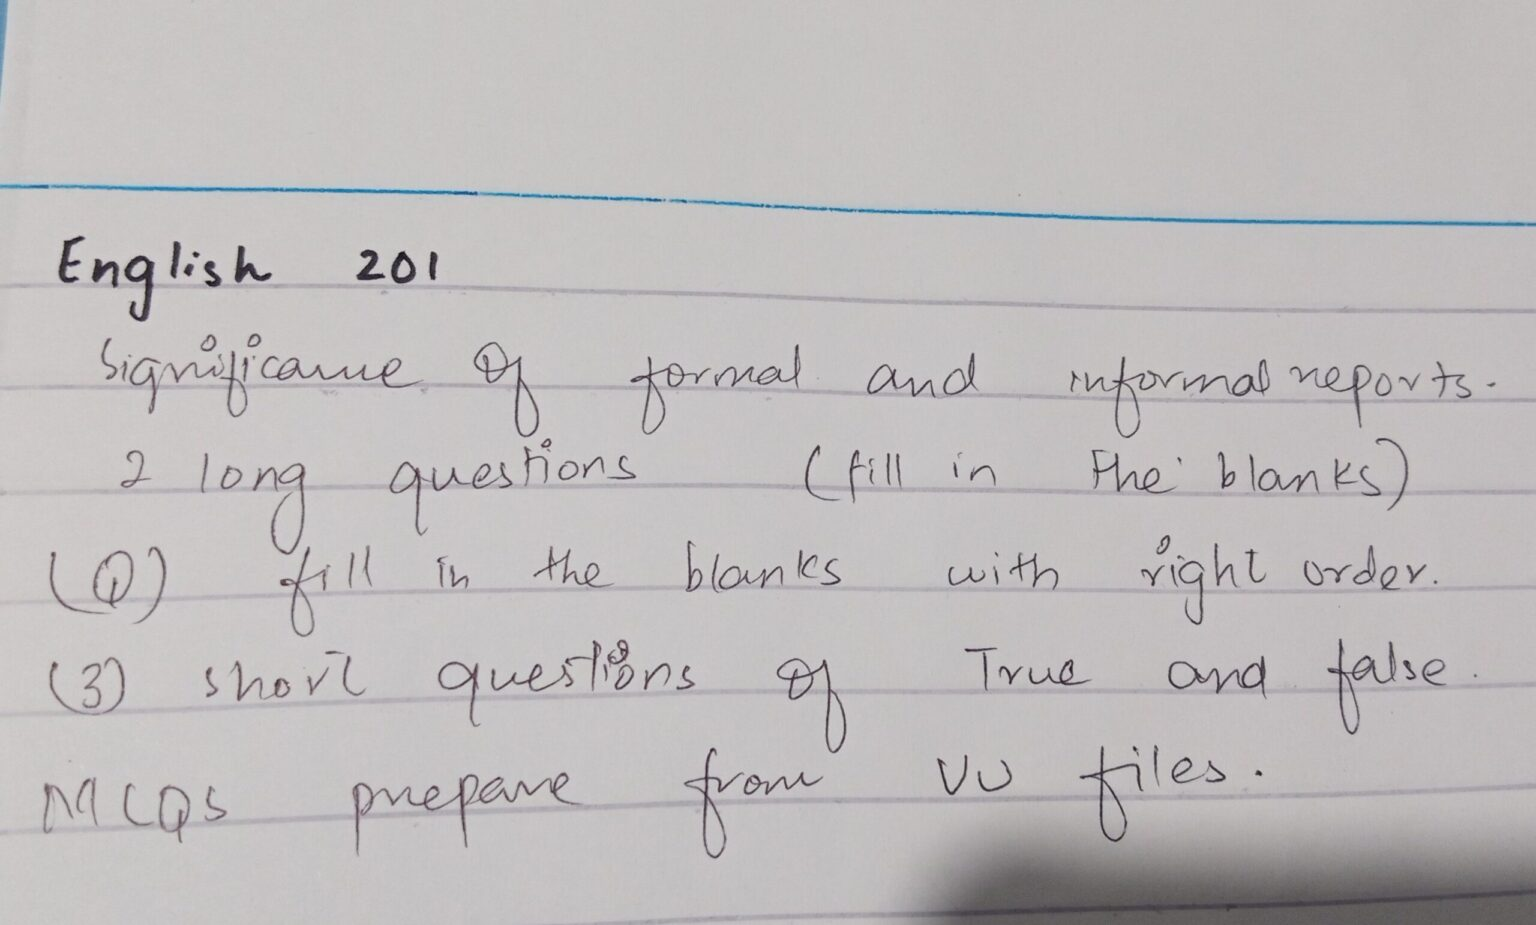 English 201
Significance of formal and informal reports.
2 long questions (fill in the blanks)
(Q) fill in the blanks with right order.
(3) short questions of True and false.
MCQs prepare from VU files.